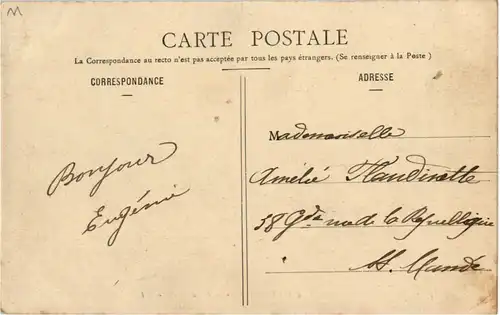 M
CARTE POSTALE
La Correspondance au recto n'est pas acceptée par tous les pays étrangers. (Se renseigner à la Poste)
CORRESPONDANCE
ADRESSE
Bonjour
Eugénie
Mademoiselle
Amélie
58 Gde rue de la République
St. Mandé